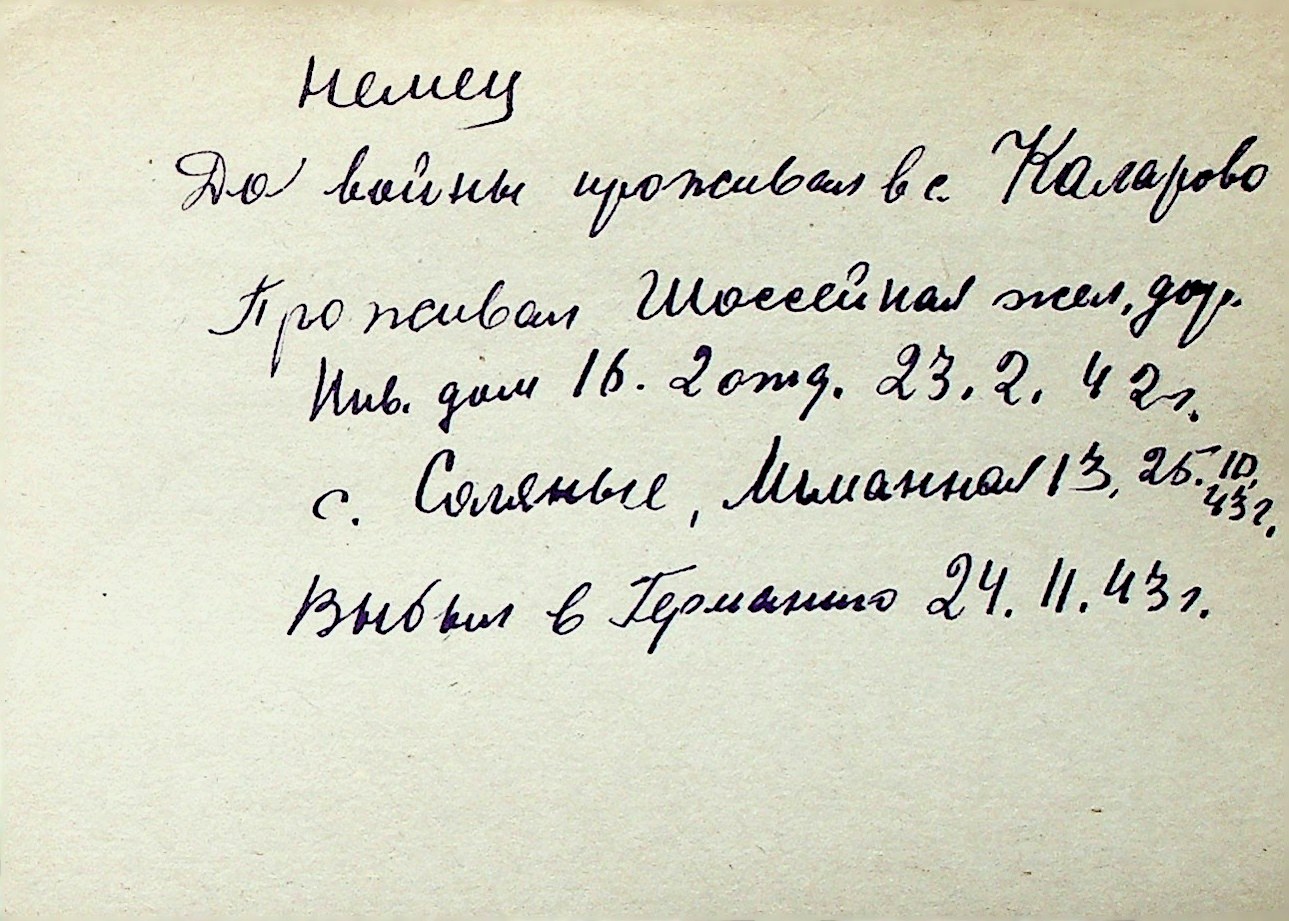 Немец
До войны проживал в с. Каларово
Проживал Шоссейная жел. дор.
Инв. дом 16. 2 отд. 23.2.42г.
с. Соляные, Лиманная 13, 25.10.43г.
Выбыл в Германию 24.11.43г.